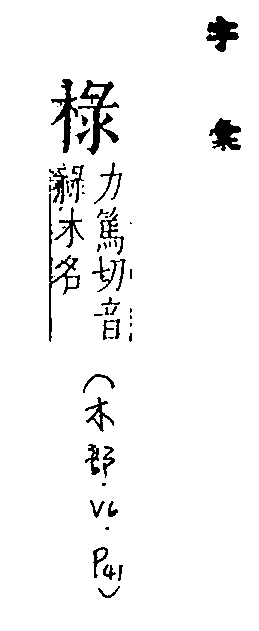 字彙
椂
力篤切音
木名
（木部．V6．P41）